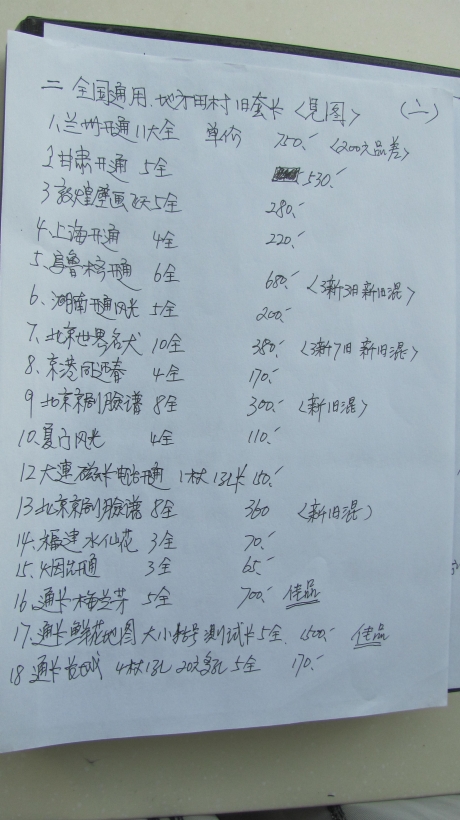 二 全国通用、地方田村旧套卡〈见图〉 (二)
1、兰州开通11大全 单价 750.- 〈200元品差〉
2 甘肃开通 5全 530.-
3 敦煌壁画飞天5全 280.-
4、上海开通 4全 220.-
5、乌鲁木齐开通 6全 680.- 〈3新3旧 新旧混〉
6、湖南开通风光 5全 200.-
7、北京世界名犬 10全 380.- 〈3新7旧 新旧混〉
8、京港同迎春 4全 170.-
9 北京京剧脸谱 8全 300.- 〈新旧混〉
10、厦门风光 4全 110.-
12 大連磁卡电话开通 1枚 13孔卡 150.-
13 北京京剧脸谱 8全 360 〈新旧混〉
14、福建水仙花 3全 70.-
15、烟台开通 3全 65.-
16、通卡梅兰芳 5全 700.- 佳品
17、通卡鲜花地图 大小括号 测试卡5全 1500.- 佳品
18 通卡长城 4枚13孔 20元多孔 5全 170.-